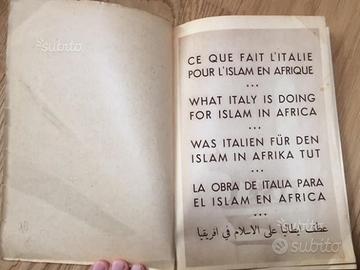 subito
CE QUE FAIT L'ITALIE
POUR L'ISLAM EN AFRIQUE
•••
WHAT ITALY IS DOING
FOR ISLAM IN AFRICA
•••
WAS ITALIEN FÜR DEN
ISLAM IN AFRIKA TUT
•••
LA OBRA DE ITALIA PARA
EL ISLAM EN AFRICA
•••
عطف ايطاليا على الاسلام في افريقيا
subito